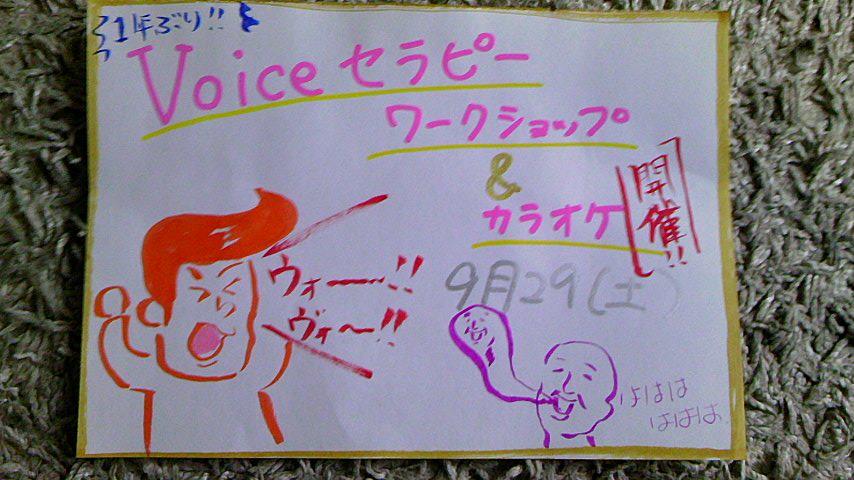 1年ぶり!!
Voice セラピー
ワークショップ
&
カラオケ
開催!!
9月29(土)
ウォーー!!
ヴォ〜!!
はははは
はははは